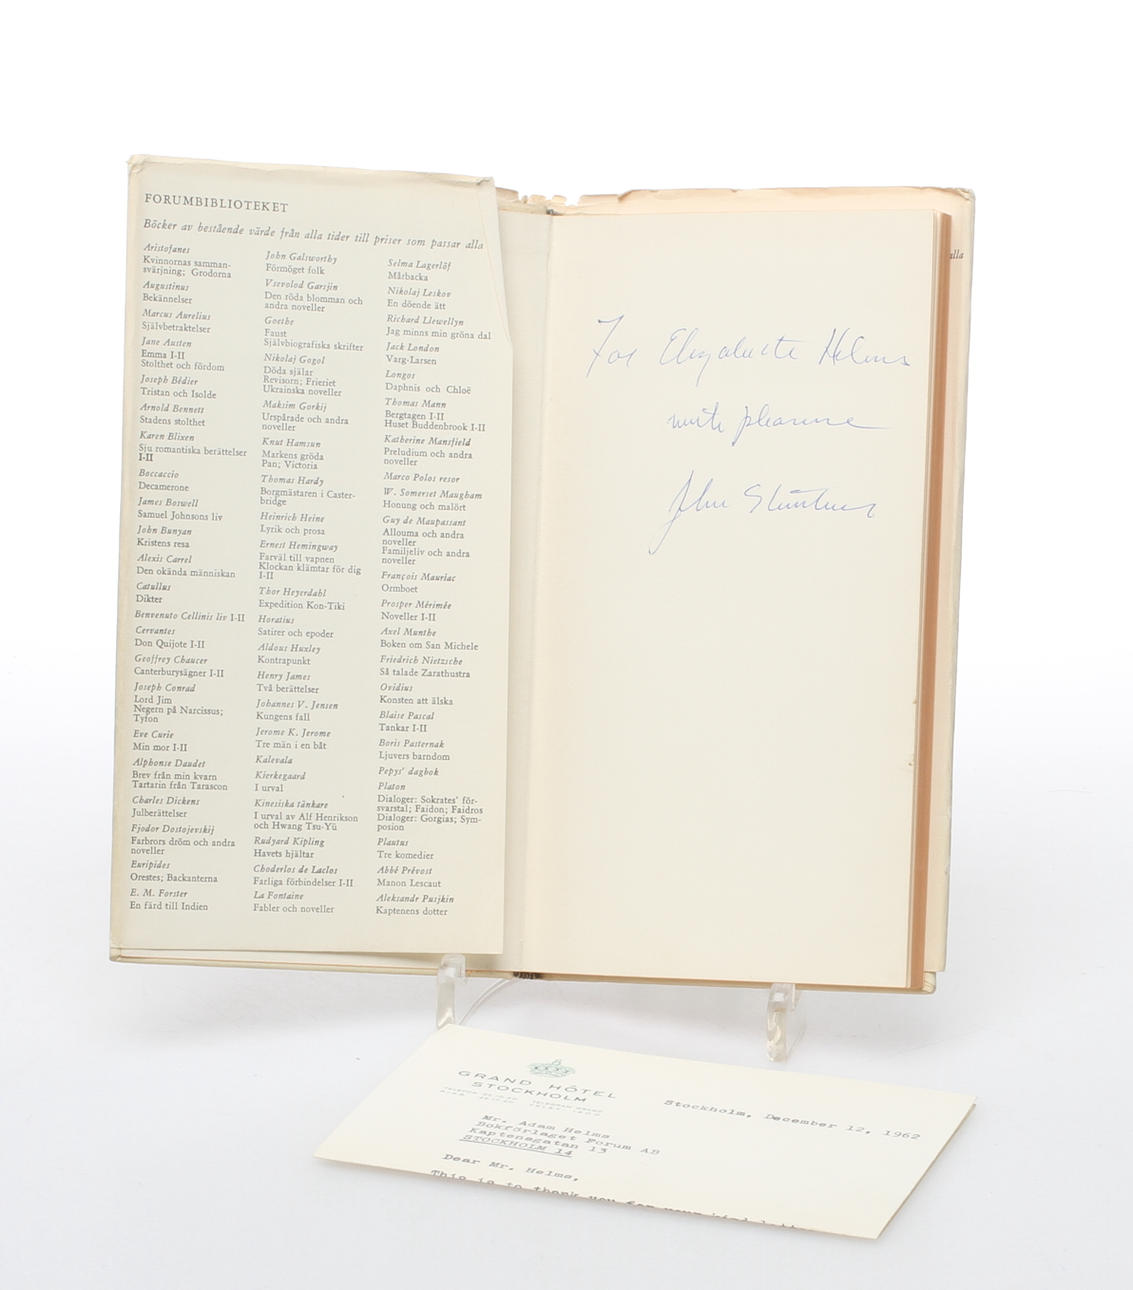 FORUMBIBLIOTEKET
Böcker av bestående värde från alla tider till priser som passar alla
Aristofanes
Kvinnornas samman-
svärjning; Grodorna
Augustinus
Bekännelser
Marcus Aurelius
Självbetraktelser
Jane Austen
Emma I-II
Stolthet och fördom
Joseph Bédier
Tristan och Isolde
Arnold Bennett
Stadens stolthet
Karen Blixen
Sju romantiska berättelser
I-II
Boccaccio
Decamerone
James Boswell
Samuel Johnsons liv
John Bunyan
Kristens resa
Alexis Carrel
Den okända människan
Catullus
Dikter
Benvenuto Cellinis liv I-II
Cervantes
Don Quijote I-II
Geoffrey Chaucer
Canterburysägner I-II
Joseph Conrad
Lord Jim
Negern på Narcissus;
Tyfon
Eve Curie
Min mor I-II
Alphonse Daudet
Brev från min kvarn
Tartarin från Tarascon
Charles Dickens
Julberättelser
Fjodor Dostojevskij
Farbrors dröm och andra
noveller
Euripides
Orestes; Backanterna
E. M. Forster
En färd till Indien
John Galsworthy
Förmöget folk
Vsevolod Garsjin
Den röda blomman och
andra noveller
Goethe
Faust
Självbiografiska skrifter
Nikolaj Gogol
Döda själar
Revisorn; Frieriet
Ukrainska noveller
Maksim Gorkij
Urspårade och andra
noveller
Knut Hamsun
Markens gröda
Pan; Victoria
Thomas Hardy
Borgmästaren i Caster-
bridge
Heinrich Heine
Lyrik och prosa
Ernest Hemingway
Farväl till vapnen
Klockan klämtar för dig
I-II
Thor Heyerdahl
Expedition Kon-Tiki
Horatius
Satirer och epoder
Aldous Huxley
Kontrapunkt
Henry James
Två berättelser
Johannes V. Jensen
Kungens fall
Jerome K. Jerome
Tre män i en båt
Kalevala
Kierkegaard
I urval
Kinesiska tänkare
I urval av Alf Henrikson
och Hwang Tsu-Yü
Rudyard Kipling
Havets hjältar
Choderlos de Laclos
Farliga förbindelser I-II
La Fontaine
Fabler och noveller
Selma Lagerlöf
Mårbacka
Nikolaj Leskov
En döende ätt
Richard Llewellyn
Jag minns min gröna dal
Jack London
Varg-Larsen
Longos
Daphnis och Chloë
Thomas Mann
Bergtagen I-II
Huset Buddenbrook I-II
Katherine Mansfield
Preludium och andra
noveller
Marco Polos resor
W. Somerset Maugham
Honung och malört
Guy de Maupassant
Allouma och andra
noveller
Familjeliv och andra
noveller
François Mauriac
Ormboet
Prosper Mérimée
Noveller I-II
Axel Munthe
Boken om San Michele
Friedrich Nietzsche
Så talade Zarathustra
Ovidius
Konsten att älska
Blaise Pascal
Tankar I-II
Boris Pasternak
Ljuvers barndom
Pepys' dagbok
Platon
Dialoger: Sokrates' för-
svarstal; Faidon; Faidros
Dialoger: Gorgias; Sym-
posion
Plautus
Tre komedier
Abbé Prévost
Manon Lescaut
Aleksandr Pusjkin
Kaptenens dotter
alla
For Elizabeth Helms
with pleasure
John Steinbeck
GRAND HÔTEL
STOCKHOLM
Stockholm, December 12, 1962
Mr. Adam Helms
Bokförlaget Forum AB
Kaptensgatan 13
STOCKHOLM 14
Dear Mr. Helms,
This is to thank you for your kind